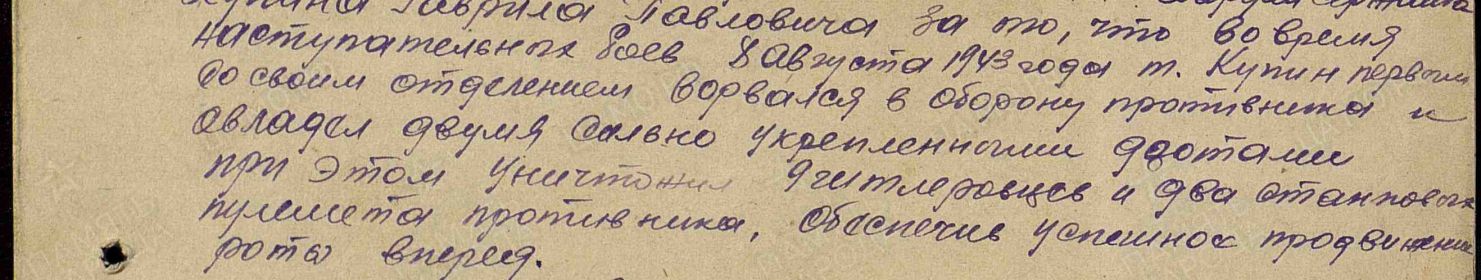 Купина Гаврила Павловича за то, что во время
наступательных боев 8 августа 1943 года т. Купин первым
со своим отделением ворвался в оборону противника и
овладел двумя сильно укрепленными дзотами
при этом уничтожил 9 гитлеровцев и два станковых
пулемета противника, обеспечив успешное продвижение
роты вперед.